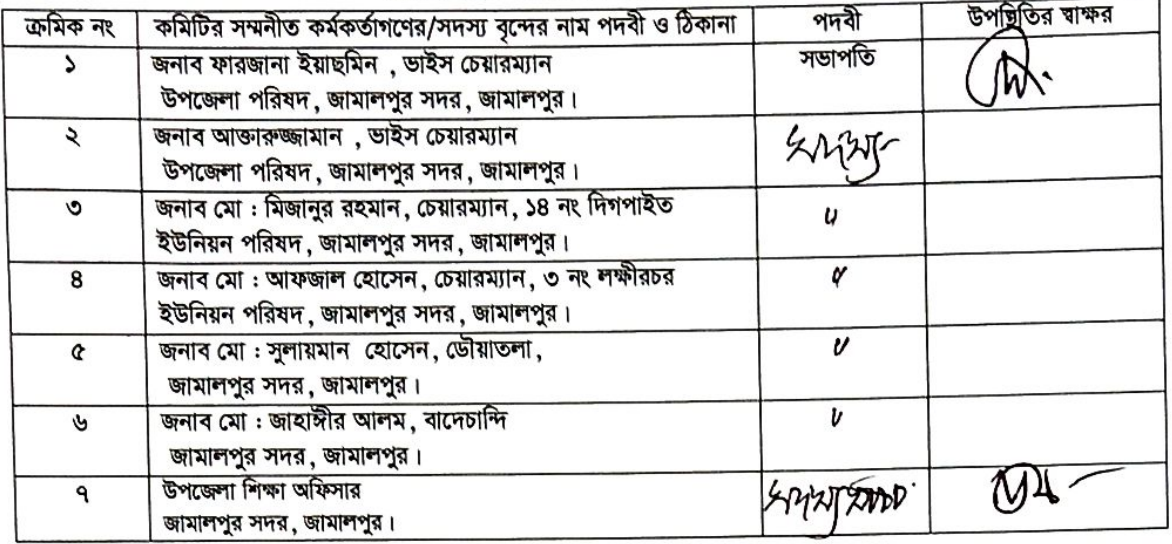 ক্রমিক নং কমিটির সম্মনীত কর্মকর্তাগণের/সদস্য বৃন্দের নাম পদবী ও ঠিকানা পদবী উপস্থিতির স্বাক্ষর
১ জনাব ফারজানা ইয়াছমিন , ভাইস চেয়ারম্যান সভাপতি
উপজেলা পরিষদ, জামালপুর সদর, জামালপুর।
২ জনাব আক্তারুজ্জামান , ভাইস চেয়ারম্যান সদস্য
উপজেলা পরিষদ, জামালপুর সদর, জামালপুর।
৩ জনাব মো : মিজানুর রহমান, চেয়ারম্যান, ১৪ নং দিগপাইত "
ইউনিয়ন পরিষদ, জামালপুর সদর, জামালপুর।
৪ জনাব মো : আফজাল হোসেন, চেয়ারম্যান, ৩ নং লক্ষীরচর "
ইউনিয়ন পরিষদ, জামালপুর সদর, জামালপুর।
৫ জনাব মো : সুলায়মান হোসেন, ডৌয়াতলা, "
জামালপুর সদর, জামালপুর।
৬ জনাব মো : জাহাঙ্গীর আলম, বাদেচান্দি "
জামালপুর সদর, জামালপুর।
৭ উপজেলা শিক্ষা অফিসার সদস্য সচিব
জামালপুর সদর, জামালপুর।